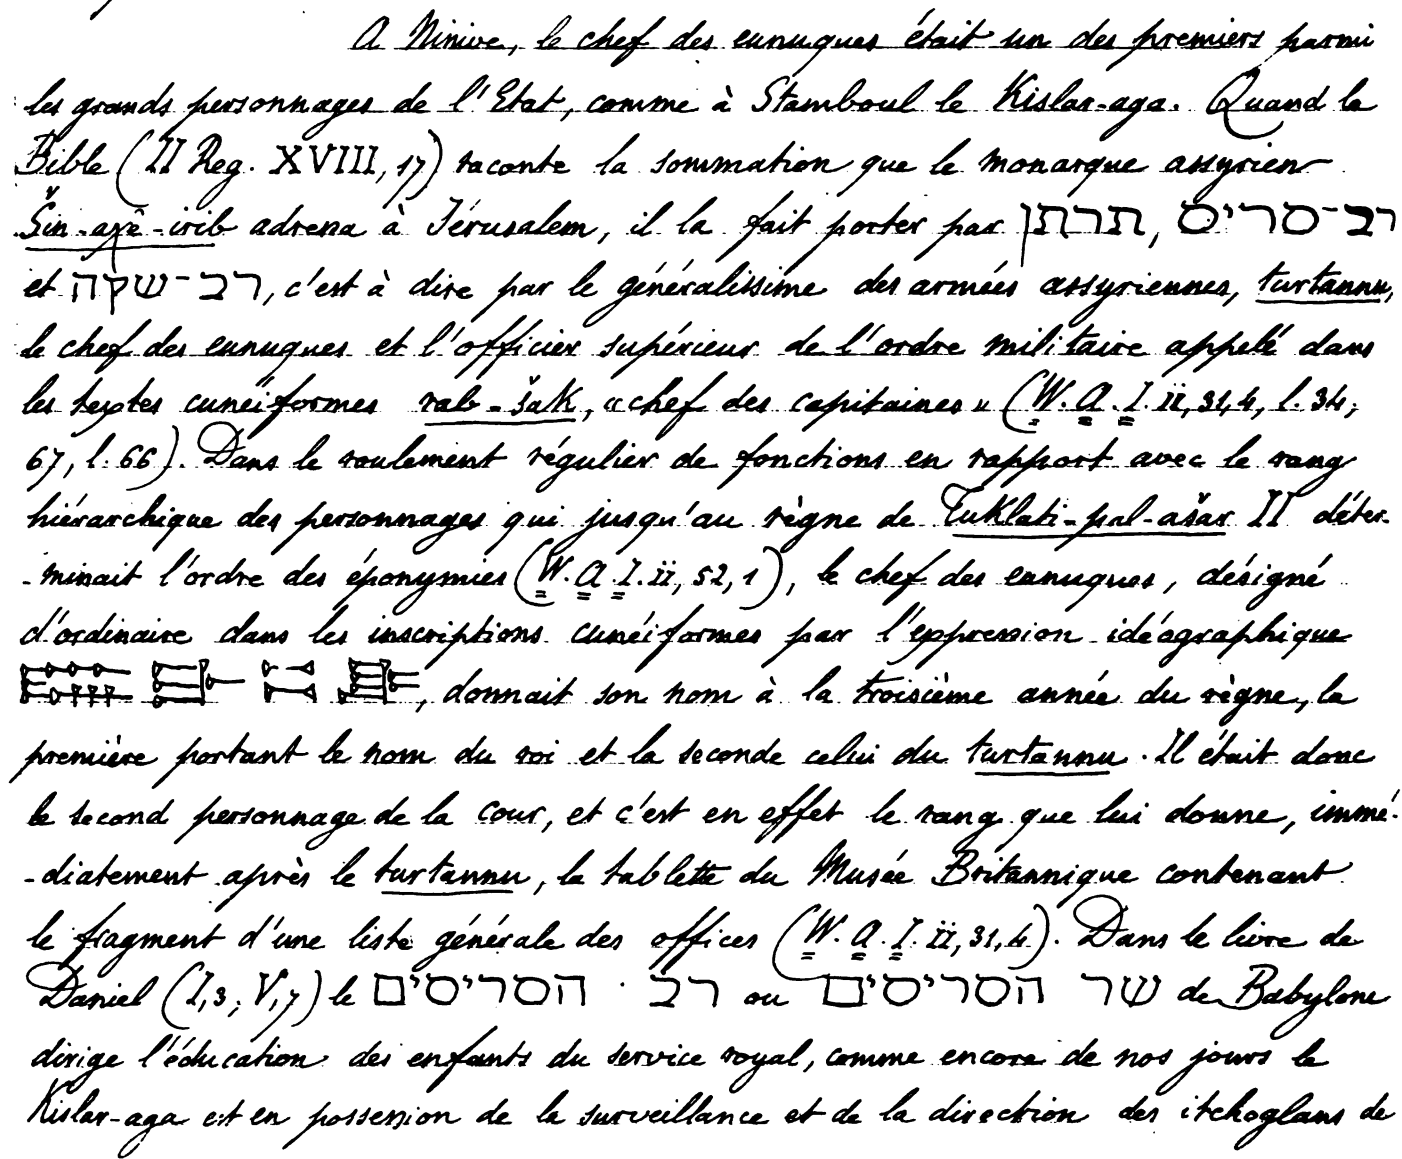 A Ninive, le chef des eunuques était un des premiers parmi
les grands personnages de l'Etat, comme à Stamboul le Kislar-aga. Quand la
Bible (II Reg. XVIII, 17) raconte la sommation que le monarque assyrien
Šin-aχê-irib adressa à Jérusalem, il la fait porter par תרתן, רב־סריס
et רב־שקה, c'est à dire par le généralissime des armées assyriennes, turtannu,
le chef des eunuques et l'officier supérieur de l'ordre militaire appelé dans
les textes cunéiformes rab-šak, «chef des capitaines» (W.A.I. ii, 31, 4, l. 34;
67, l. 66). Dans le roulement régulier de fonctions en rapport avec le rang
hiérarchique des personnages qui jusqu'au règne de Tuklati-pal-ašar II déter-
-minait l'ordre des éponymies (W.A.I. ii, 52, 1), le chef des eunuques, désigné
d'ordinaire dans les inscriptions cunéiformes par l'expression idéographique
, donnait son nom à la troisième année du règne, la
première portant le nom du roi et la seconde celui du turtannu. Il était donc
le second personnage de la cour, et c'est en effet le rang que lui donne, immé-
-diatement après le turtannu, la tablette du Musée Britannique contenant
le fragment d'une liste générale des offices (W.A.I. ii, 31, 4). Dans le livre de
Daniel (I, 3; V, 7) le רב הסריסים ou שר הסריסים de Babylone
dirige l'éducation des enfants du service royal, comme encore de nos jours le
Kislar-aga est en possession de la surveillance et de la direction des itchoglans de